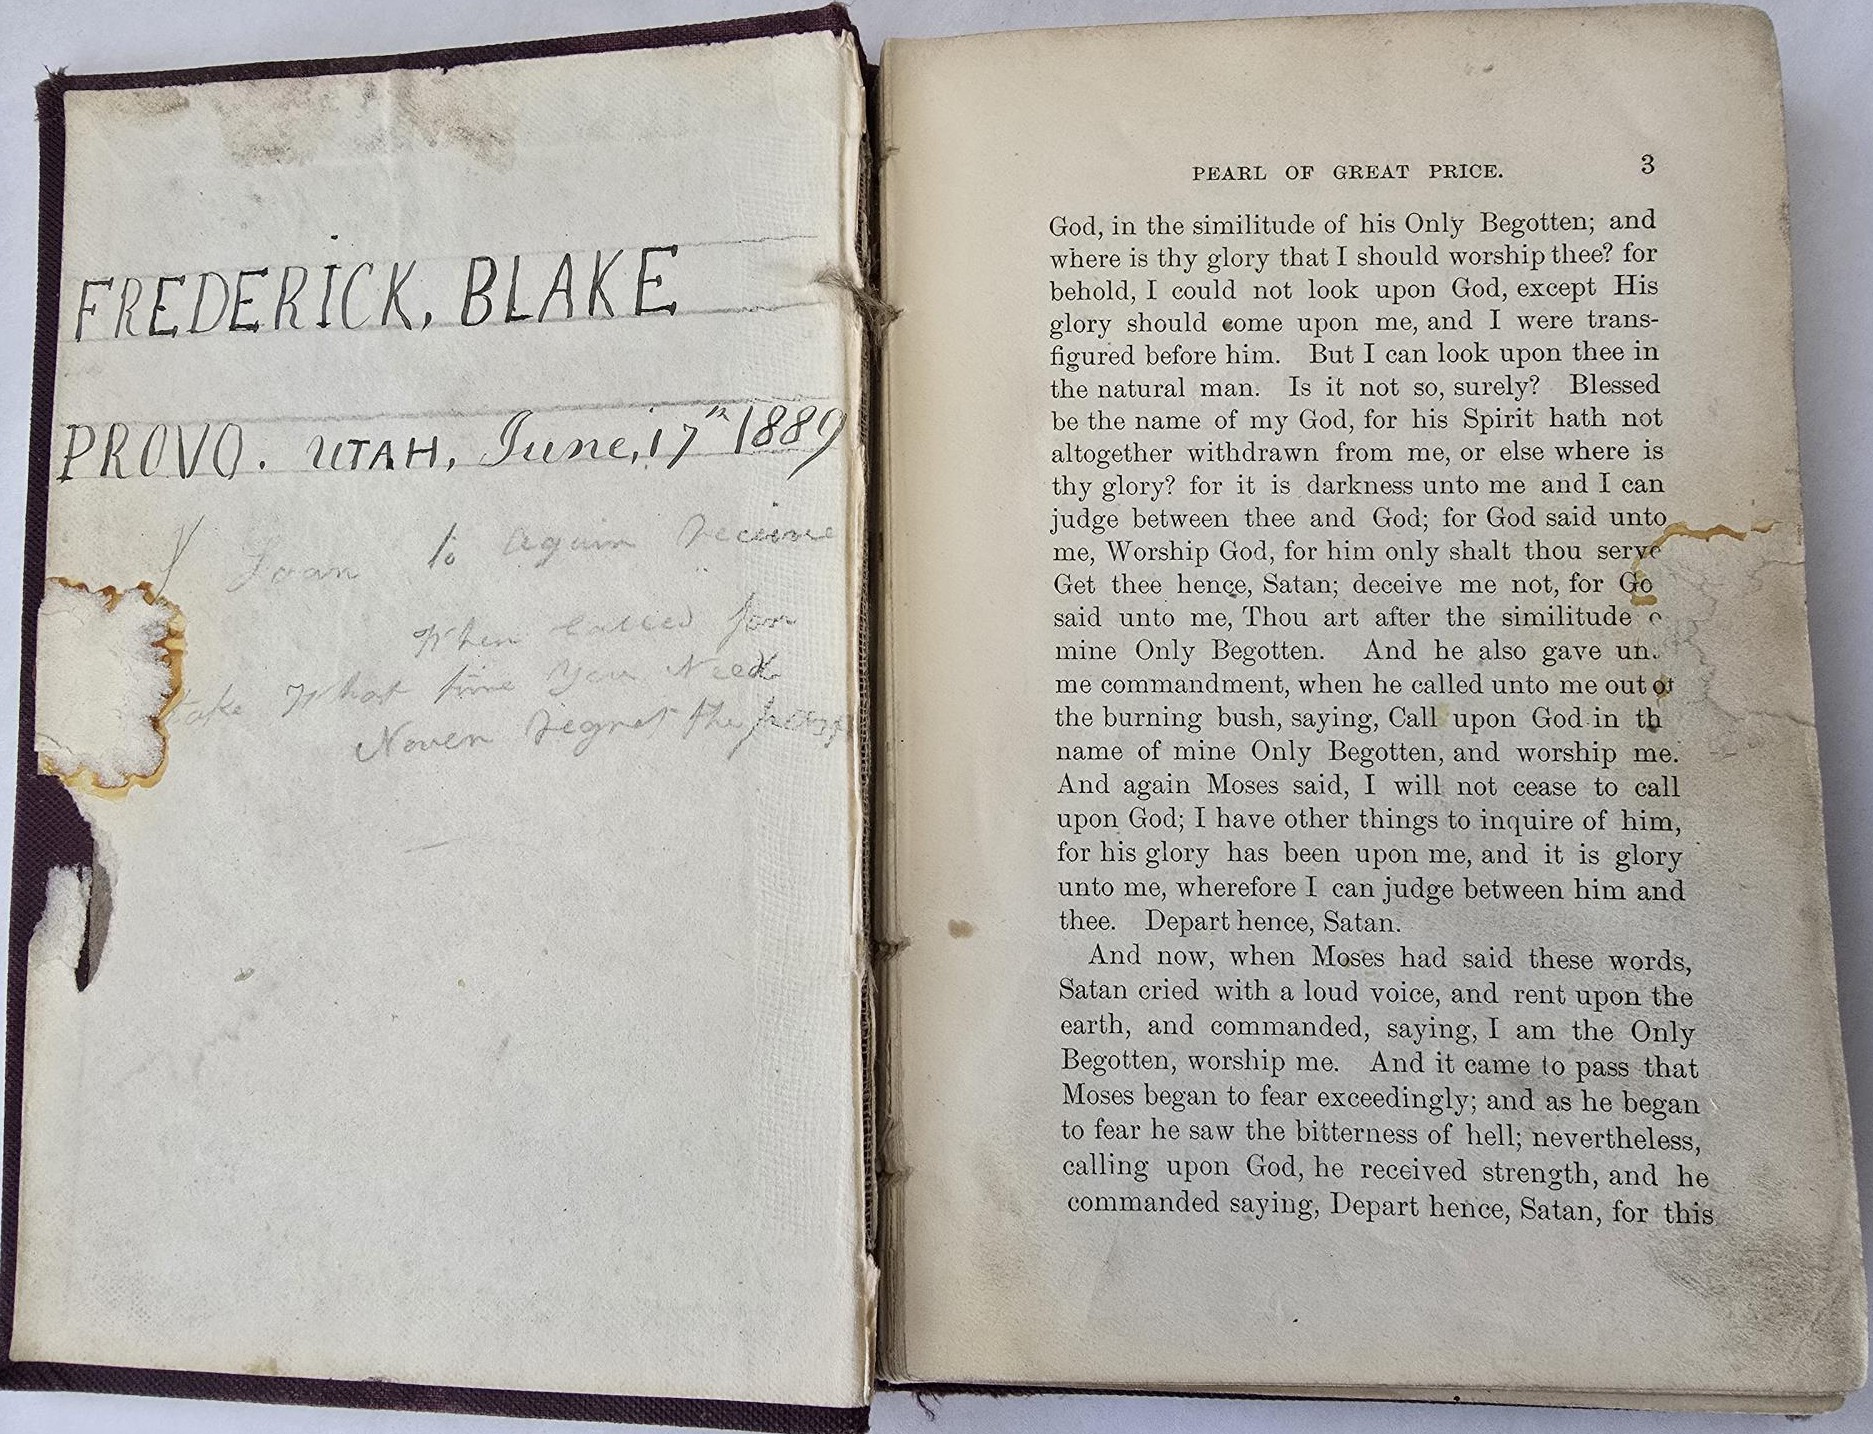 FREDERICK, BLAKE
PROVO. UTAH, June, 17th 1889
I Loan to again receive
When called for
take What time you Need
Never regret the
PEARL OF GREAT PRICE. 3
God, in the similitude of his Only Begotten; and
where is thy glory that I should worship thee? for
behold, I could not look upon God, except His
glory should come upon me, and I were trans-
figured before him. But I can look upon thee in
the natural man. Is it not so, surely? Blessed
be the name of my God, for his Spirit hath not
altogether withdrawn from me, or else where is
thy glory? for it is darkness unto me and I can
judge between thee and God; for God said unto
me, Worship God, for him only shalt thou serve
Get thee hence, Satan; deceive me not, for Go
said unto me, Thou art after the similitude o
mine Only Begotten. And he also gave un
me commandment, when he called unto me out of
the burning bush, saying, Call upon God in th
name of mine Only Begotten, and worship me.
And again Moses said, I will not cease to call
upon God; I have other things to inquire of him,
for his glory has been upon me, and it is glory
unto me, wherefore I can judge between him and
thee. Depart hence, Satan.
And now, when Moses had said these words,
Satan cried with a loud voice, and rent upon the
earth, and commanded, saying, I am the Only
Begotten, worship me. And it came to pass that
Moses began to fear exceedingly; and as he began
to fear he saw the bitterness of hell; nevertheless,
calling upon God, he received strength, and he
commanded saying, Depart hence, Satan, for this